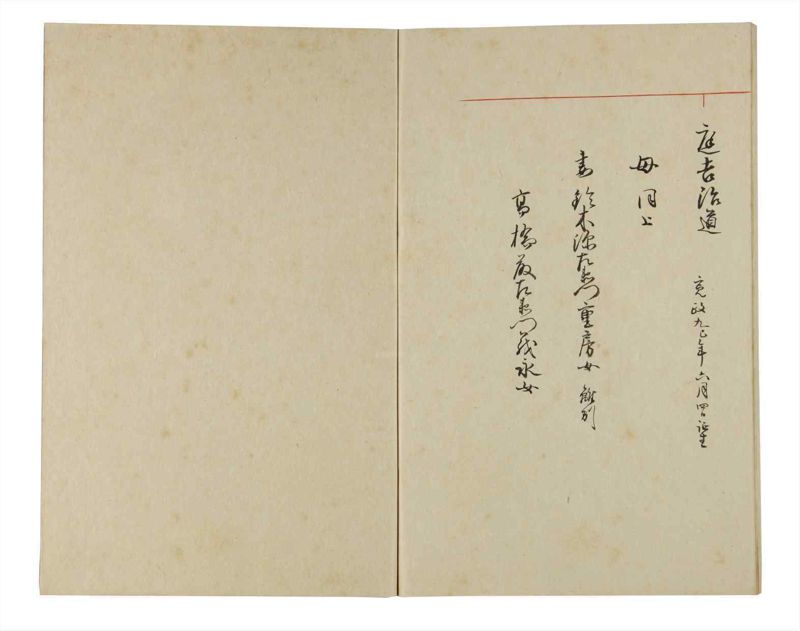 庭吉治道 寛政九巳年六月四日誕生
母同上
妻鈴木源左衛門重房女 離別
高橋敬左衛門茂永女